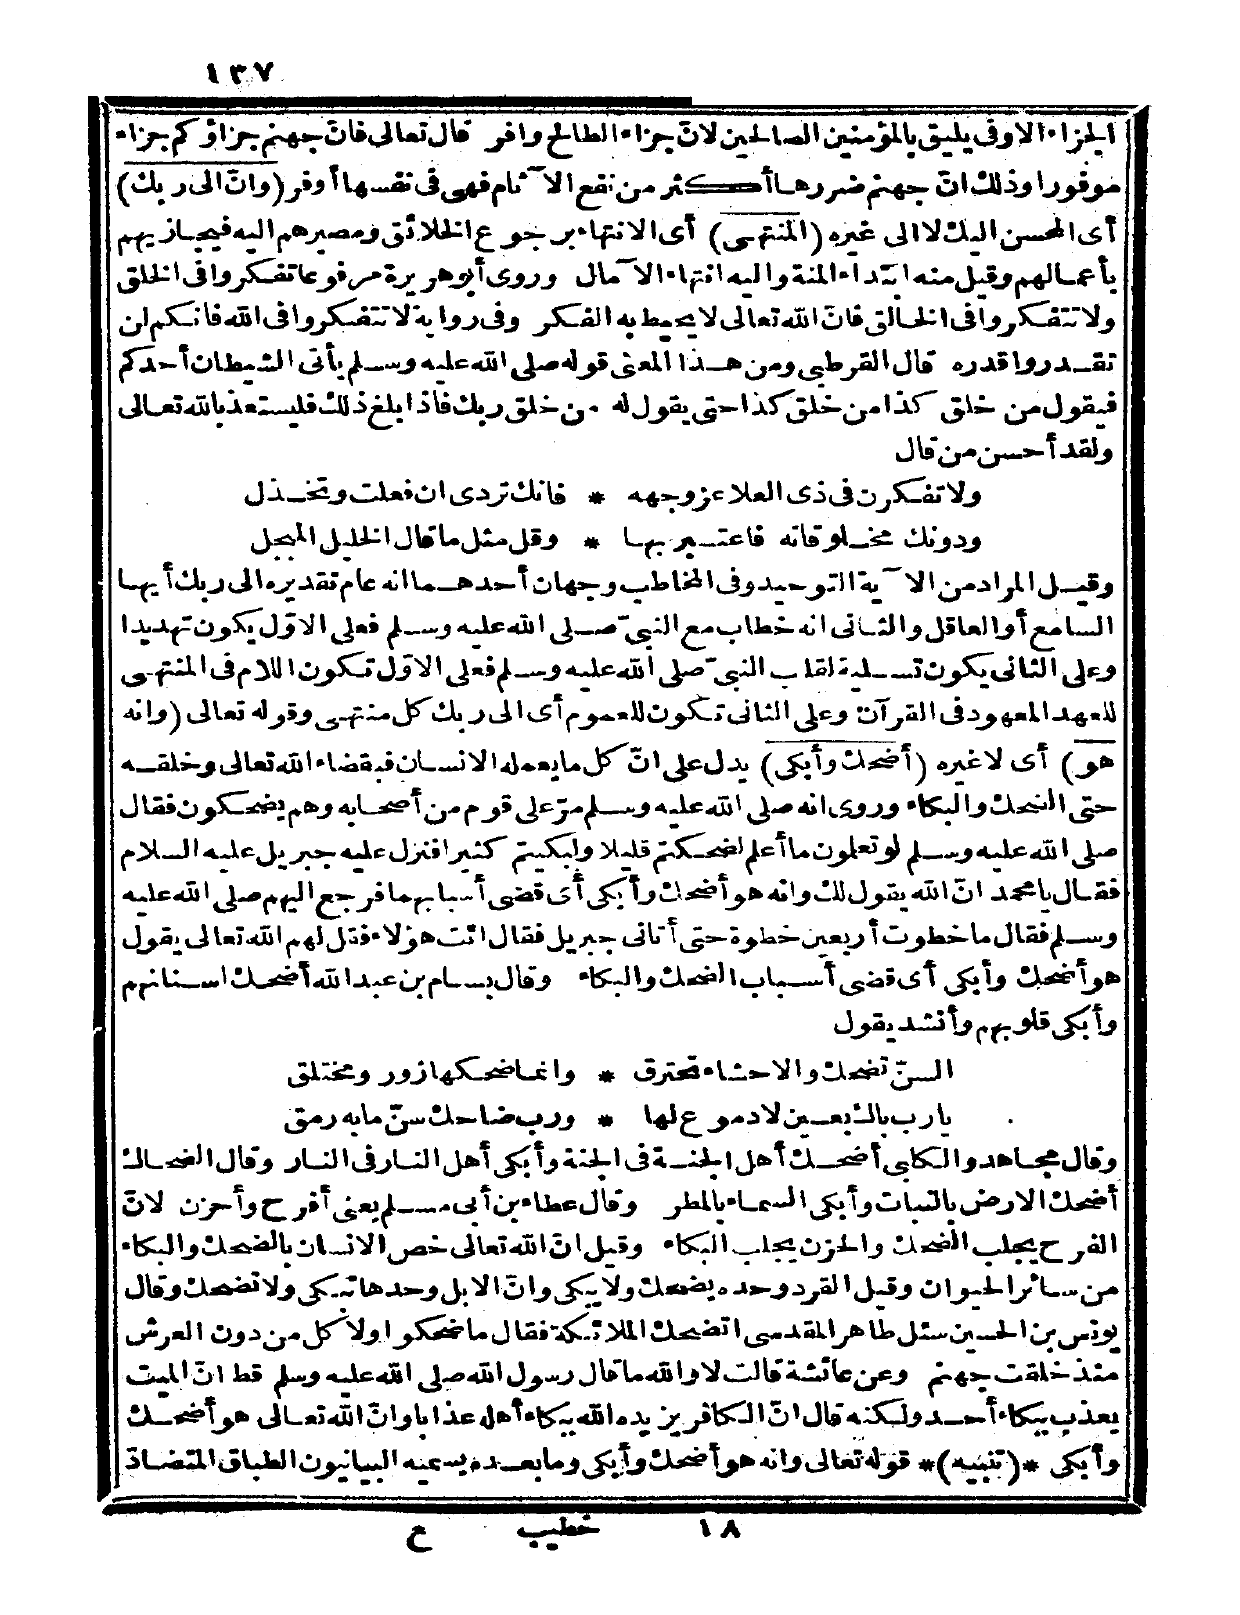 ١٣٧
الجزاء الاوفى يليق بالمؤمنين الصالحين لانّ جزاء الطالح وافر قال تعالى فانّ جهنم جزاؤكم جزاء
موفورا وذلك انّ جهنم ضررها أكثر من نفع الآثام فهى فى نفسها أوفر (وانّ الى ربك)
أى المحسن اليك لا الى غيره (المنتهى) أى الانتهاء برجوع الخلائق ومصيرهم اليه فيجازيهم
بأعمالهم وقيل منه ابتداء المنة واليه انتهاء الآمال وروى أبو هريرة مرفوعا تفكروا فى الخلق
ولا تتفكروا فى الخالق فانّ الله تعالى لا يحيط به الفكر وفى رواية لا تتفكروا فى الله فانكم لن
تقدروا قدره قال القرطبى ومن هذا المعنى قوله صلى الله عليه وسلم يأتى الشيطان أحدكم
فيقول من خلق كذا من خلق كذا حتى يقول له من خلق ربك فاذا بلغ ذلك فليستعذ بالله تعالى
ولقد أحسن من قال
ولا تفكرن فى ذى العلا عز وجهه * فانك تردى ان فعلت وتخذل
ودونك مخلوقاته فاعتبر بها * وقل مثل ما قال الخليل المبجل
وقيل المراد من الآية التوحيد وفى المخاطب وجهان أحدهما انه عام تقديره الى ربك أيها
السامع أو العاقل والثانى انه خطاب مع النبىّ صلى الله عليه وسلم فعلى الاوّل يكون تهديدا
وعلى الثانى يكون تسلية لقلب النبىّ صلى الله عليه وسلم فعلى الاوّل تكون اللام فى المنتهى
للعهد المعهود فى القرآن وعلى الثانى تكون للعموم أى الى ربك كل منتهى وقوله تعالى (وانه
هو) أى لا غيره (أضحك وأبكى) يدل على انّ كل ما يعمله الانسان فبقضاء الله تعالى وخلقه
حتى الضحك والبكاء وروى انه صلى الله عليه وسلم مرّ على قوم من أصحابه وهم يضحكون فقال
صلى الله عليه وسلم لو تعلمون ما أعلم لضحكتم قليلا ولبكيتم كثيرا فنزل عليه جبريل عليه السلام
فقال يا محمد انّ الله يقول لك وانه هو أضحك وأبكى أى قضى أسبابهما فرجع اليهم صلى الله عليه
وسلم فقال ما خطوت أربعين خطوة حتى أتانى جبريل فقال ائت هؤلاء فقل لهم الله تعالى يقول
هو أضحك وأبكى أى قضى أسباب الضحك والبكاء وقال بسام بن عبد الله أضحك اسنانهم
وأبكى قلوبهم وأنشد يقول
السنّ تضحك والاحشاء تحترق * وانما ضحكها زور ومختلق
يا رب باك بعين لا دموع لها * ورب ضاحك سنّ ما به رمق
وقال مجاهد والكلبى أضحك أهل الجنة فى الجنة وأبكى أهل النار فى النار وقال الضحاك
أضحك الارض بالنبات وأبكى السماء بالمطر وقال عطاء بن أبى مسلم يعنى أفرح وأحزن لانّ
الفرح يجلب الضحك والحزن يجلب البكاء وقيل انّ الله تعالى خص الانسان بالضحك والبكاء
من سائر الحيوان وقيل القرد وحده يضحك ولا يبكى وانّ الابل وحدها تبكى ولا تضحك وقال
يونس بن الحسين سئل طاهر المقدسى اتضحك الملائكة فقال ما ضحكوا ولا كل من دون العرش
منذ خلقت جهنم وعن عائشة قالت لا والله ما قال رسول الله صلى الله عليه وسلم قط انّ الميت
يعذب ببكاء أحد ولكنه قال انّ الكافر يزيده الله ببكاء أهله عذابا وانّ الله تعالى هو أضحك
وأبكى *(تنبيه)* قوله تعالى وانه هو أضحك وأبكى وما بعده يسميه البيانيون الطباق المتضادّ
١٨ خطيب ع